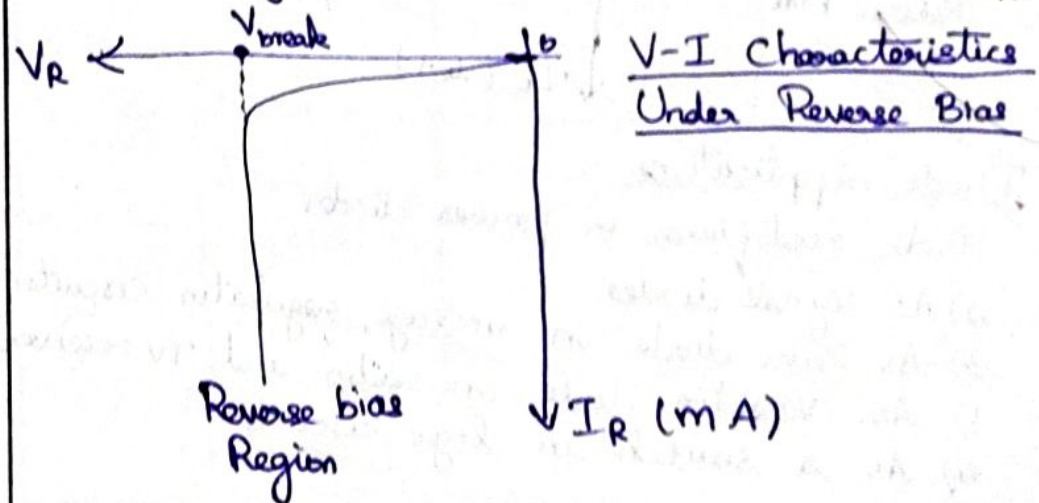 V break
V_R
0
V-I Characteristics
Under Reverse Bias
Reverse bias
Region
I_R (mA)